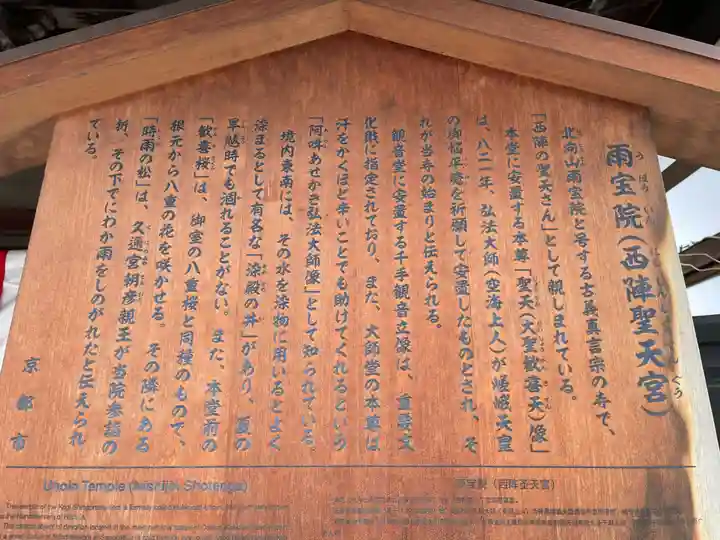 雨宝院(西陣聖天宮)
北向山雨宝院と号する古義真言宗の寺で、
「西陣の聖天さん」として親しまれている。
本堂に安置する本尊「聖天(大聖歓喜天)像」
は、八二一年、弘法大師(空海上人)が嵯峨天皇
の御悩平癒を祈願して安置したものとされ、そ
れが当寺の始まりと伝えられる。
観音堂に安置する千手観音立像は、重要文
化財に指定されており、また、大師堂の本尊は
汗をかくほど辛いことでも助けてくれるという
「阿吽あせかき弘法大師像」として知られている。
境内東南には、その水を染物に用いるとよく
染まるとして有名な「染殿の井」があり、夏の
旱魃時でも涸れることがない。また、本堂前の
「歓喜桜」は、御室の八重桜と同種のもので、
根元から八重の花を咲かせる。その隣にある
「時雨の松」は、久邇宮朝彦親王が当院参詣の
折、その下でにわか雨をしのがれたと伝えられ
ている。
京都市
Uhoin Temple (Nishijin Shotengu)
雨宝院(西阵圣天宫)